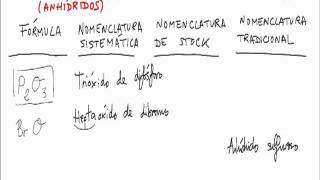 (ANHÍDRIDOS)
FÓRMULA NOMENCLATURA SISTEMÁTICA NOMENCLATURA DE STOCK NOMENCLATURA TRADICIONAL
P2O3 Trióxido de difósforo
Br O Heptaóxido de dibromo
Anhídrido sulfuroso